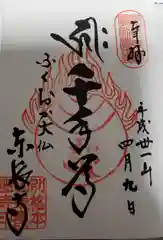 奉拝
平成卅一年
四月九日
千手尊
ふくおか大仏
東長寺